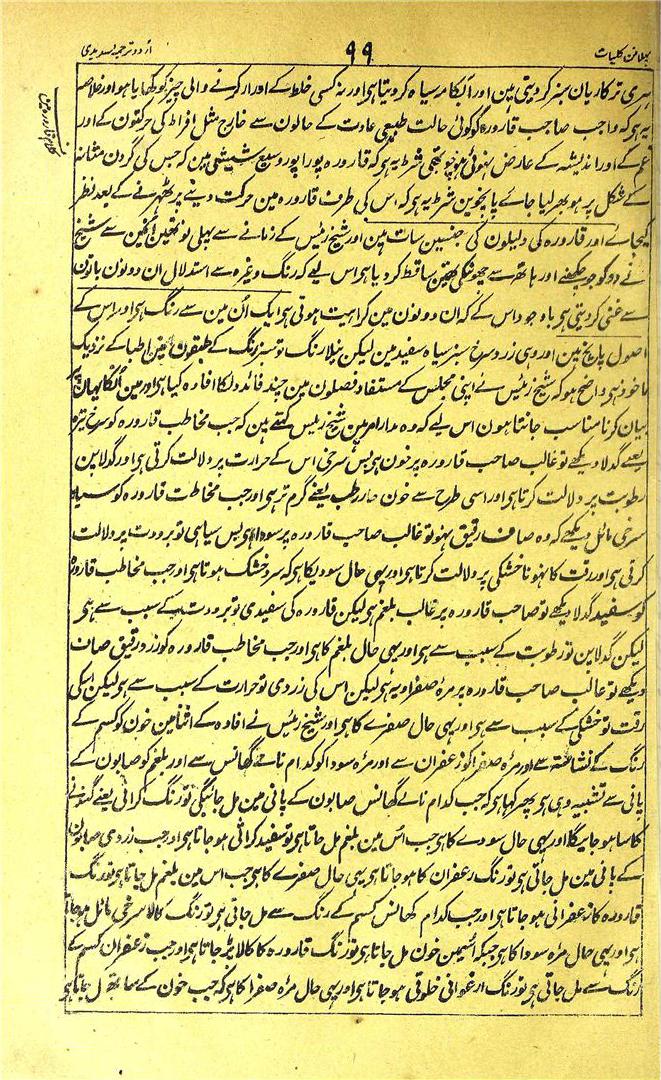 پہلا فن کلیات
۹۹
اردو ترجمہ سدیدی
ہری ترکاریان سبز کر دیتی ہین اور آبکامہ سیاہ کر دیتا ہی اور نہ کسی خلط کے ادرار کرنے والی چیز کو کھایا ہو اور خلاصہ
یہ ہو کہ واجب صاحب قارورہ کو کوئی حالت طبیعی عادت کے حالون سے خارج مثل افراط کی حرکتون کے اور
غم کے اور اندیشہ کے عارض نہوئی ہو چوتھی شرط یہ ہو کہ قارورہ پورا پورا وسیع شیشی مین کہ جس کی گردن مثانہ
کے شکل پر ہو بھر لیا جائے پانچوین شرط یہ ہو کہ اس کی طرف قارورہ مین حرکت دینے پر ٹھہرنے کے بعد نظر
کیجائے اور قارورہ کی دلیلون کی جنسین سات ہین اور شیخ رئیس کے زمانے سے پہلی نو تھین انمین سے شیخ
نے دو کو جو چکھنے اور ہاتھ سے چھونے کی تھین ساقط کر دیا ہی اس لیے کہ رنگ وغیرہ سے استدلال ان دونون باتون
سے غنی کر دیتی ہو باوجود اس کے کہ ان دونون مین کراہیت ہوتی ہی ایک اُن مین سے رنگ ہی اور اس کے
اصول پانچ ہین اور وہی زرد سرخ سبز سیاہ سفید ہین لیکن نیلا رنگ تو سبز رنگ کے طبقون مین اطبا کے نزدیک
ماخوذ ہی واضح ہو کہ شیخ رئیس نے اپنی مجلس کے مستفاد فصلون مین چند فائدونکا افادہ کیا ہی اور مین اُنکا یہان پر
بیان کرنا مناسب جانتا ہون اس لیے کہ وہ مدار امر ہین شیخ رئیس کہتے ہین کہ جب مخاطب قارورہ کو سرخ تیرہ
یعنے گدلا دیکھے تو غالب صاحب قارورہ پر خون ہی پس سرخی اس کے حرارت پر دلالت کرتی ہی اور گدلا پن
رطوبت پر دلالت کرتا ہی اور اسی طرح سے خون حار رطب یعنے گرم تر ہی اور جب مخاطب قارورہ کو سیاہ
سرخی مائل دیکھے کہ وہ صاف رقیق نہو تو غالب صاحب قارورہ پر سودا ہی پس سیاہی تو برودت پر دلالت
کرتی ہی اور رقت کا نہونا خشکی پر دلالت کرتا ہی اور یہی حال سودیکا ہی کہ سرد خشک ہوتا ہی اور جب مخاطب قارورہ
کو سفید گدلا دیکھے تو صاحب قارورہ پر غالب بلغم ہی لیکن قارورہ کی سفیدی تو برودت کے سبب سے ہی
لیکن گدلا پن تو رطوبت کے سبب سے ہی اور یہی حال بلغم کا ہی اور جب مخاطب قارورہ کو زرد رقیق صاف
دیکھے تو غالب صاحب قارورہ پر مرۂ صفراویہ ہی لیکن اس کی زردی تو حرارت کے سبب سے ہی لیکن اسکی
رقت تو خشکی کے سبب سے ہی اور یہی حال صفرے کا ہی اور شیخ رئیس نے افادہ کے اثنا مین خون کو کسم کے
رنگ کے نشاستہ سے اور مرۂ صفرا کو زعفران سے اور مرۂ سودا کو کدام نامے گھانس سے اور بلغم کو صابون کے
پانی سے تشبیہ دی ہی پھر کہا ہی کہ جب کدام نامے گھانس صابون کے پانی مین مل جائیگی تو رنگ کراثی یعنے گندنے
کا سا ہو جائیگا اور یہی حال سودے کا ہی جب اُس مین بلغم مل جاتا ہی تو سفید کراثی ہو جاتا ہی اور جب زردی صابون
کے پانی مین مل جاتی ہی تو رنگ زعفران کا ہو جاتا ہی یہی حال صفرے کا ہی جب اس مین بلغم مل جاتا ہی تو رنگ
قارورہ کا زعفرانی ہو جاتا ہی اور جب کدام گھانس کسم کے رنگ سے مل جاتی ہی تو رنگ کالا سرخی مائل ہو جاتا
ہی اور یہی حال مرۂ سودا کا ہی جبکہ اسمین خون مل جاتا ہی تو رنگ قارورہ کا کالا پڑ جاتا ہی اور جب زعفران کسم کے
رنگ سے مل جاتی ہی تو رنگ ارغوانی خلوقی ہو جاتا ہی اور یہی حال مرۂ صفرا کا ہی کہ جب خون کے ساتھ مل جاتا ہی